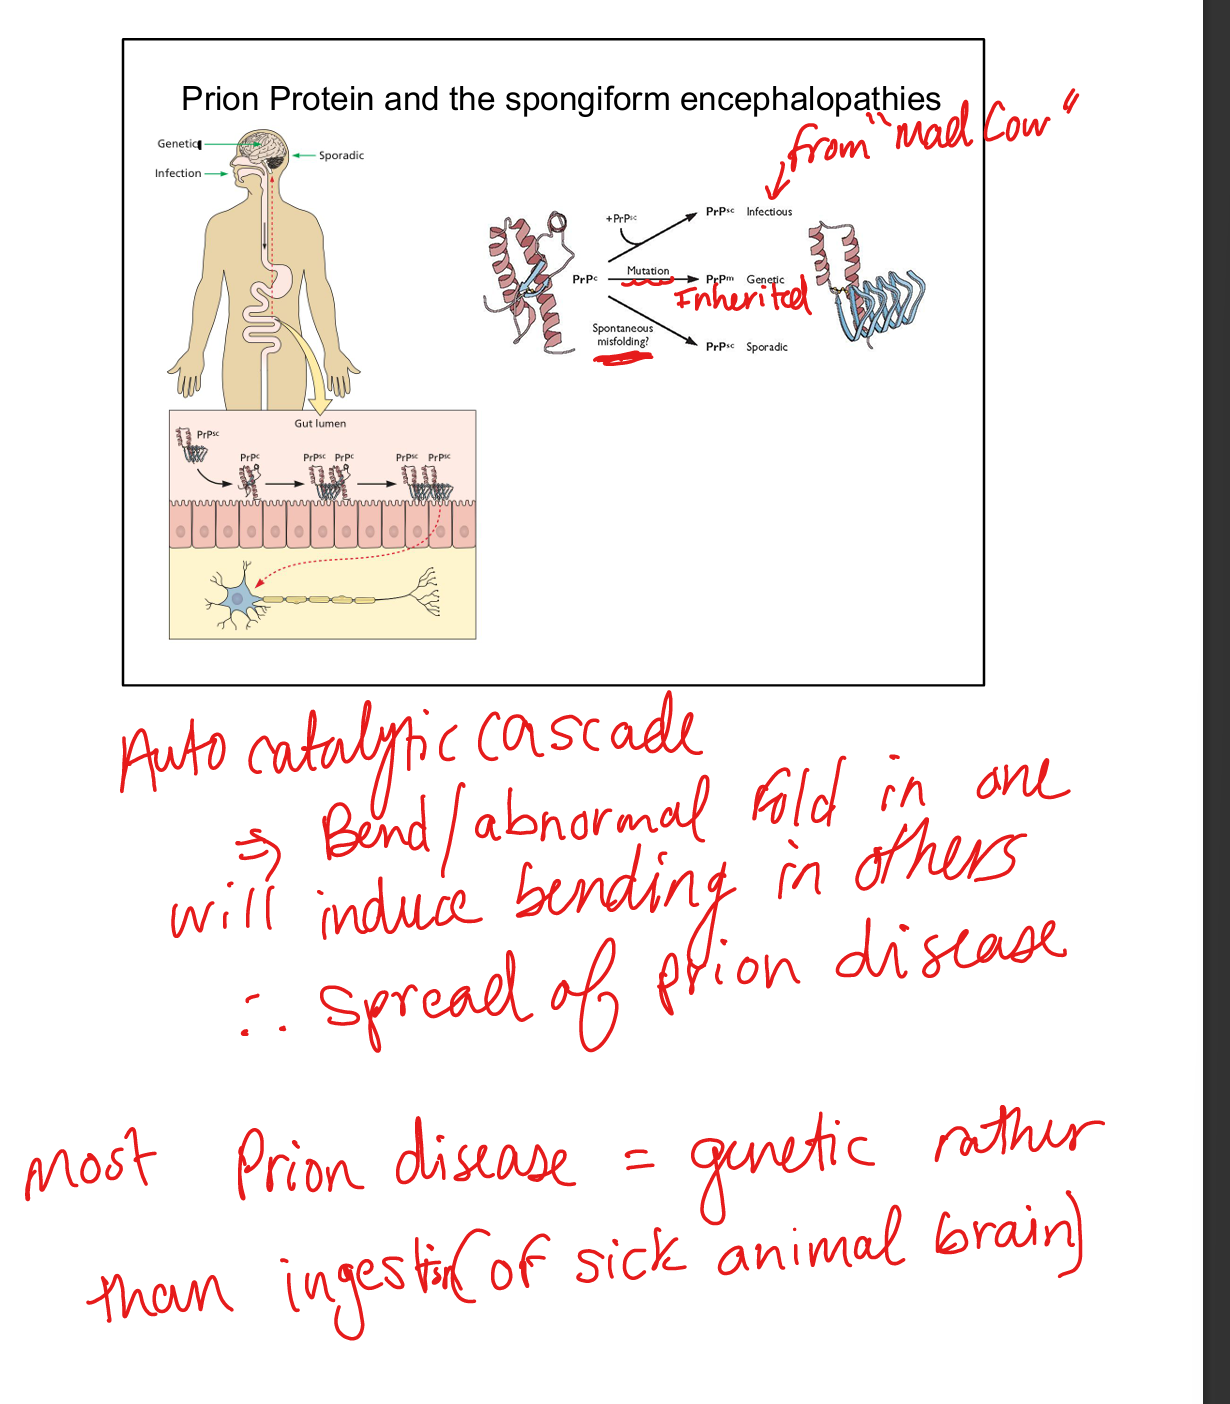 Prion Protein and the spongiform encephalopathies
from "Mad Cow"
Genetic
Sporadic
Infection
+PrPsc
PrPsc Infectious
PrPc
Mutation
PrPm Genetic
Inherited
Spontaneous
misfolding?
PrPsc Sporadic
Gut lumen
PrPsc
PrPc
PrPsc PrPc
PrPsc PrPsc
Auto catalytic cascade
⇒ Bend/abnormal fold in one
will induce bending in others
∴ spread of prion disease
most Prion disease = genetic rather
than ingestion (of sick animal brain)